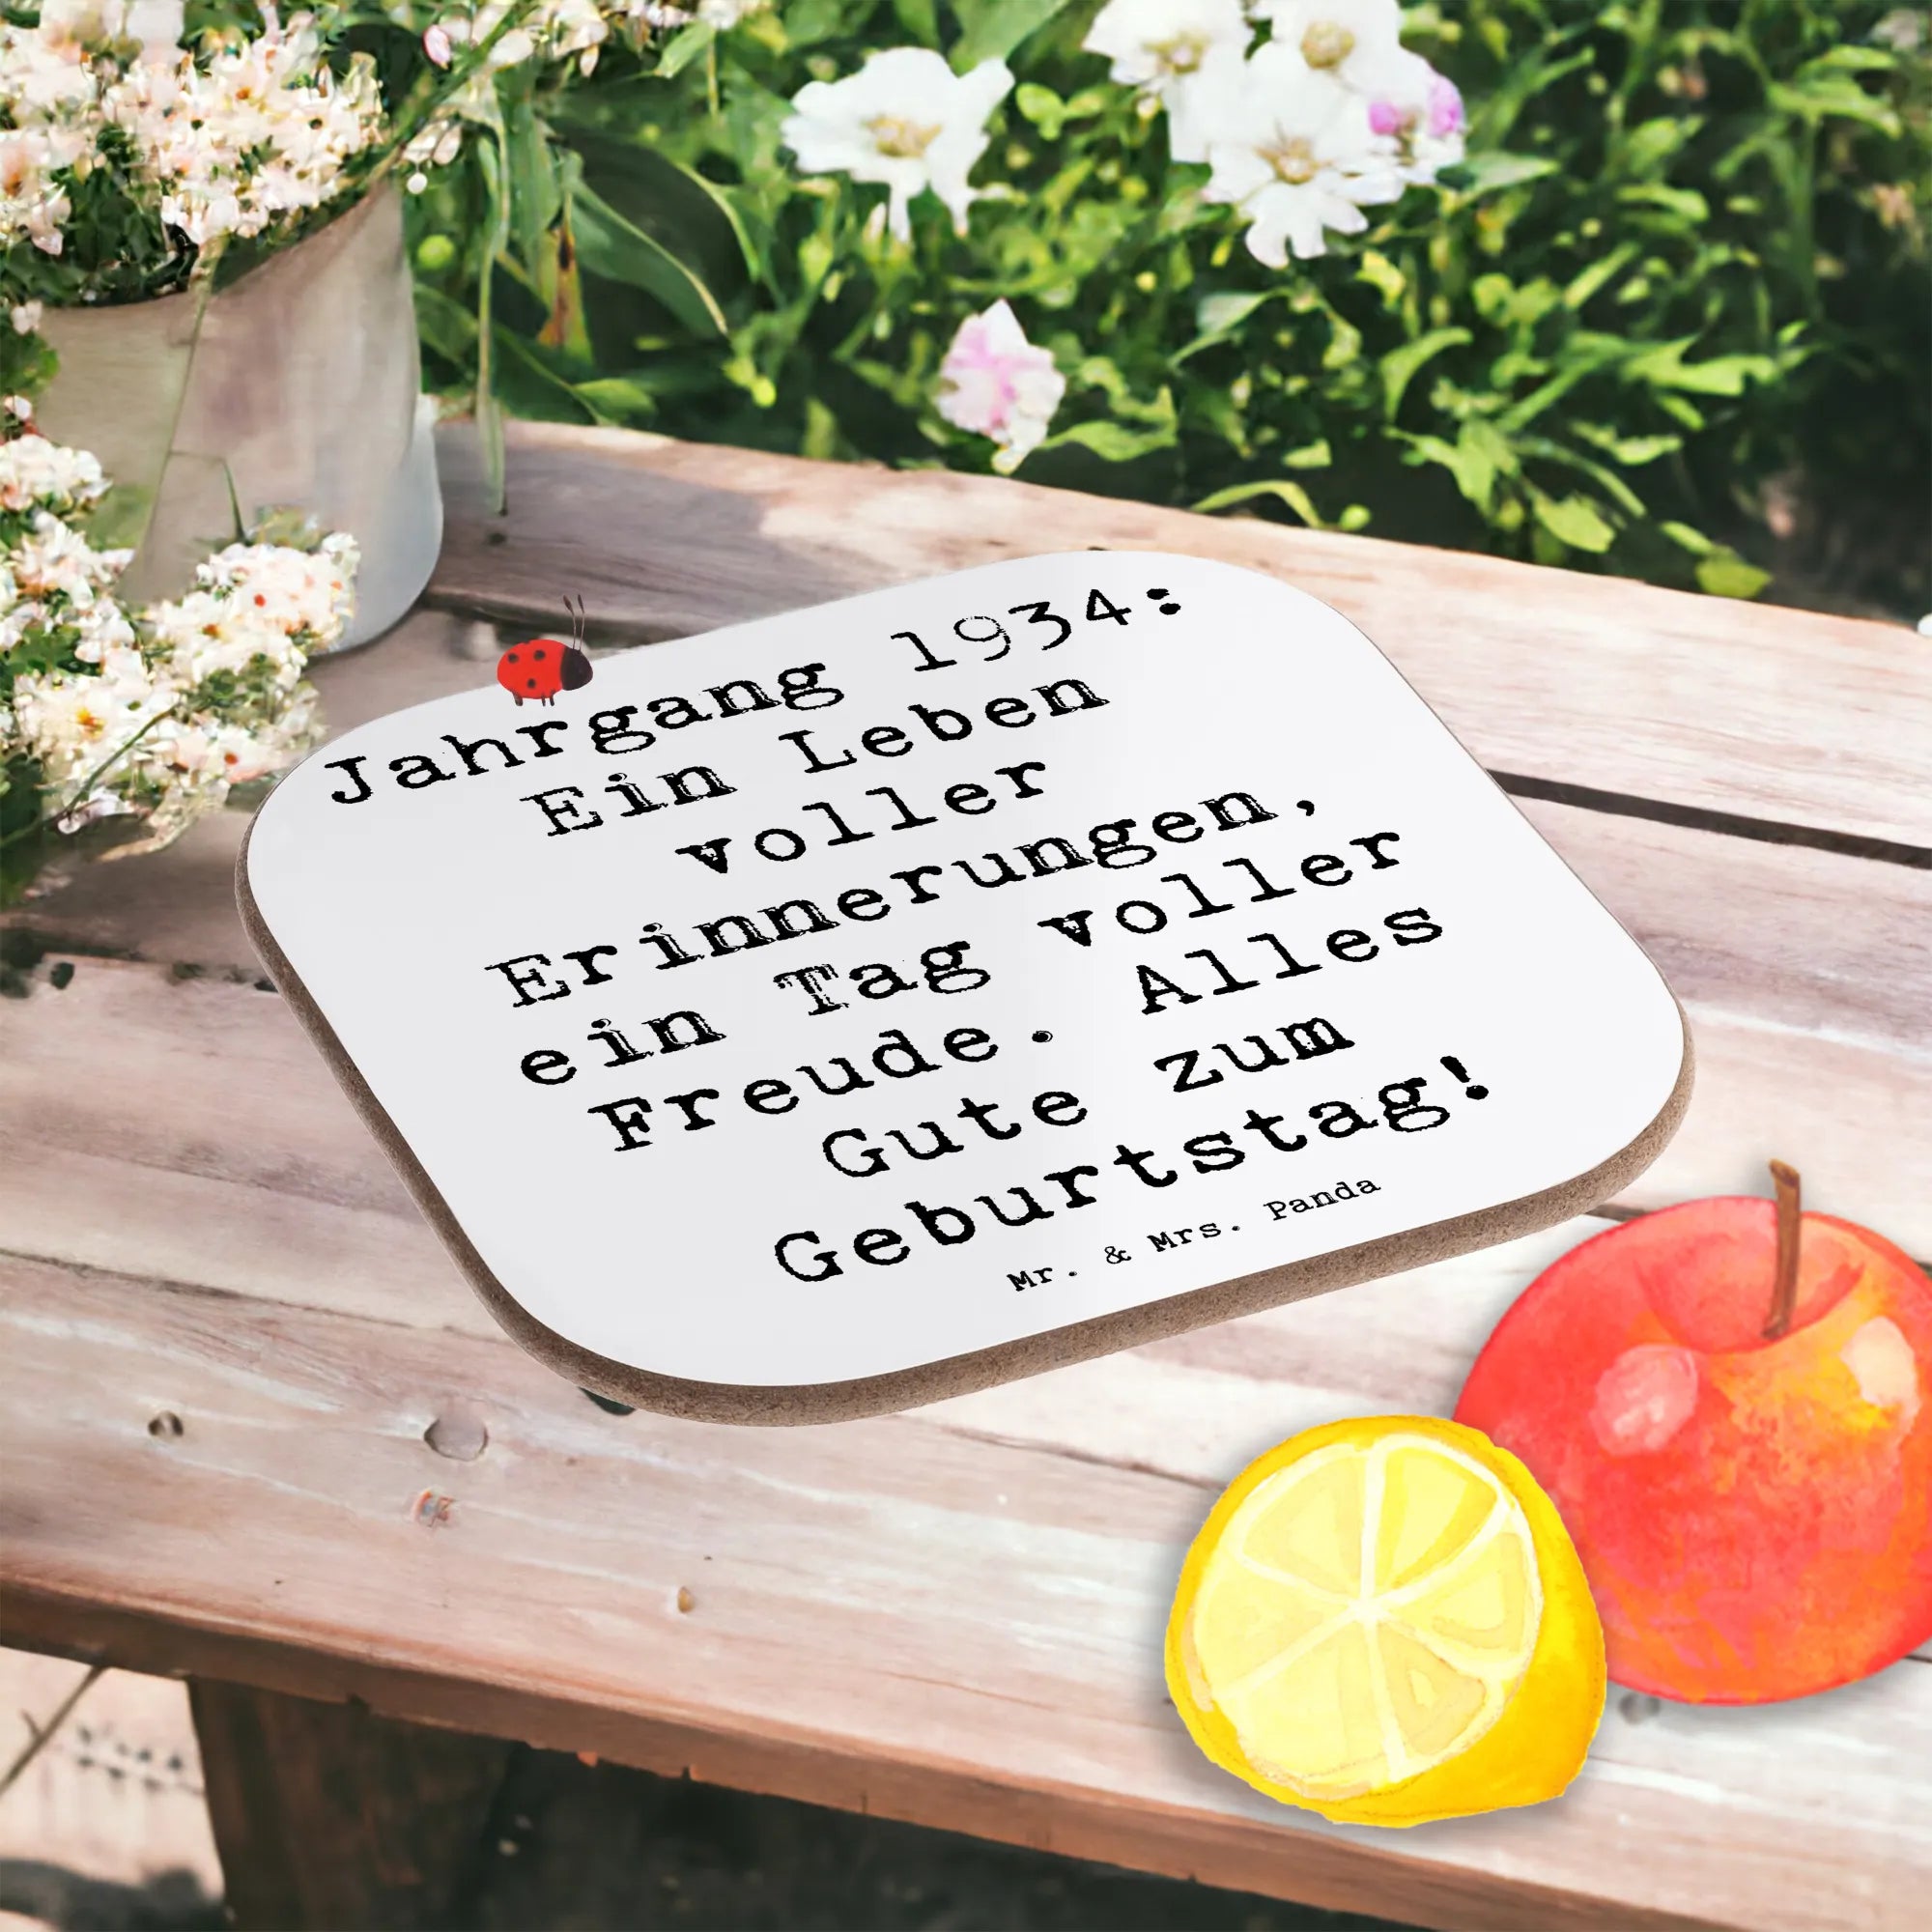 Jahrgang 1934:
Ein Leben
voller
Erinnerungen,
ein Tag voller
Freude. Alles
Gute zum
Geburtstag!
Mr. & Mrs. Panda